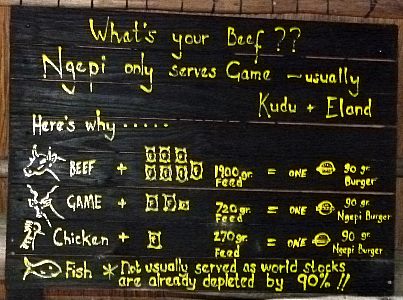 What's your Beef ??
Ngepi only serves Game - usually
Kudu + Eland
Here's why .....
BEEF + 1900 gr. Feed = ONE 90 gr. Burger
GAME + 720 gr. Feed = ONE 90 gr. Ngepi Burger
Chicken + 270 gr. Feed = ONE 90 gr. Ngepi Burger
Fish * Not usually served as world stocks
are already depleted by 90% !!